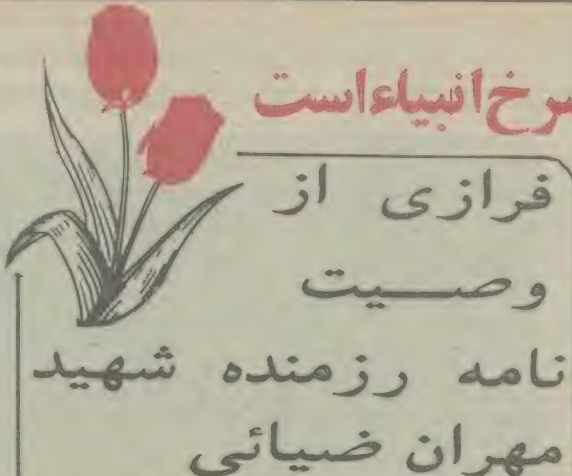 سرخ انبیاء است
فرازی از
وصیت
نامه رزمنده شهید
مهران ضیائی